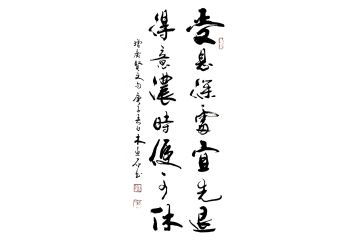 受恩深處宜先退
得意濃時便可休
增廣賢文句